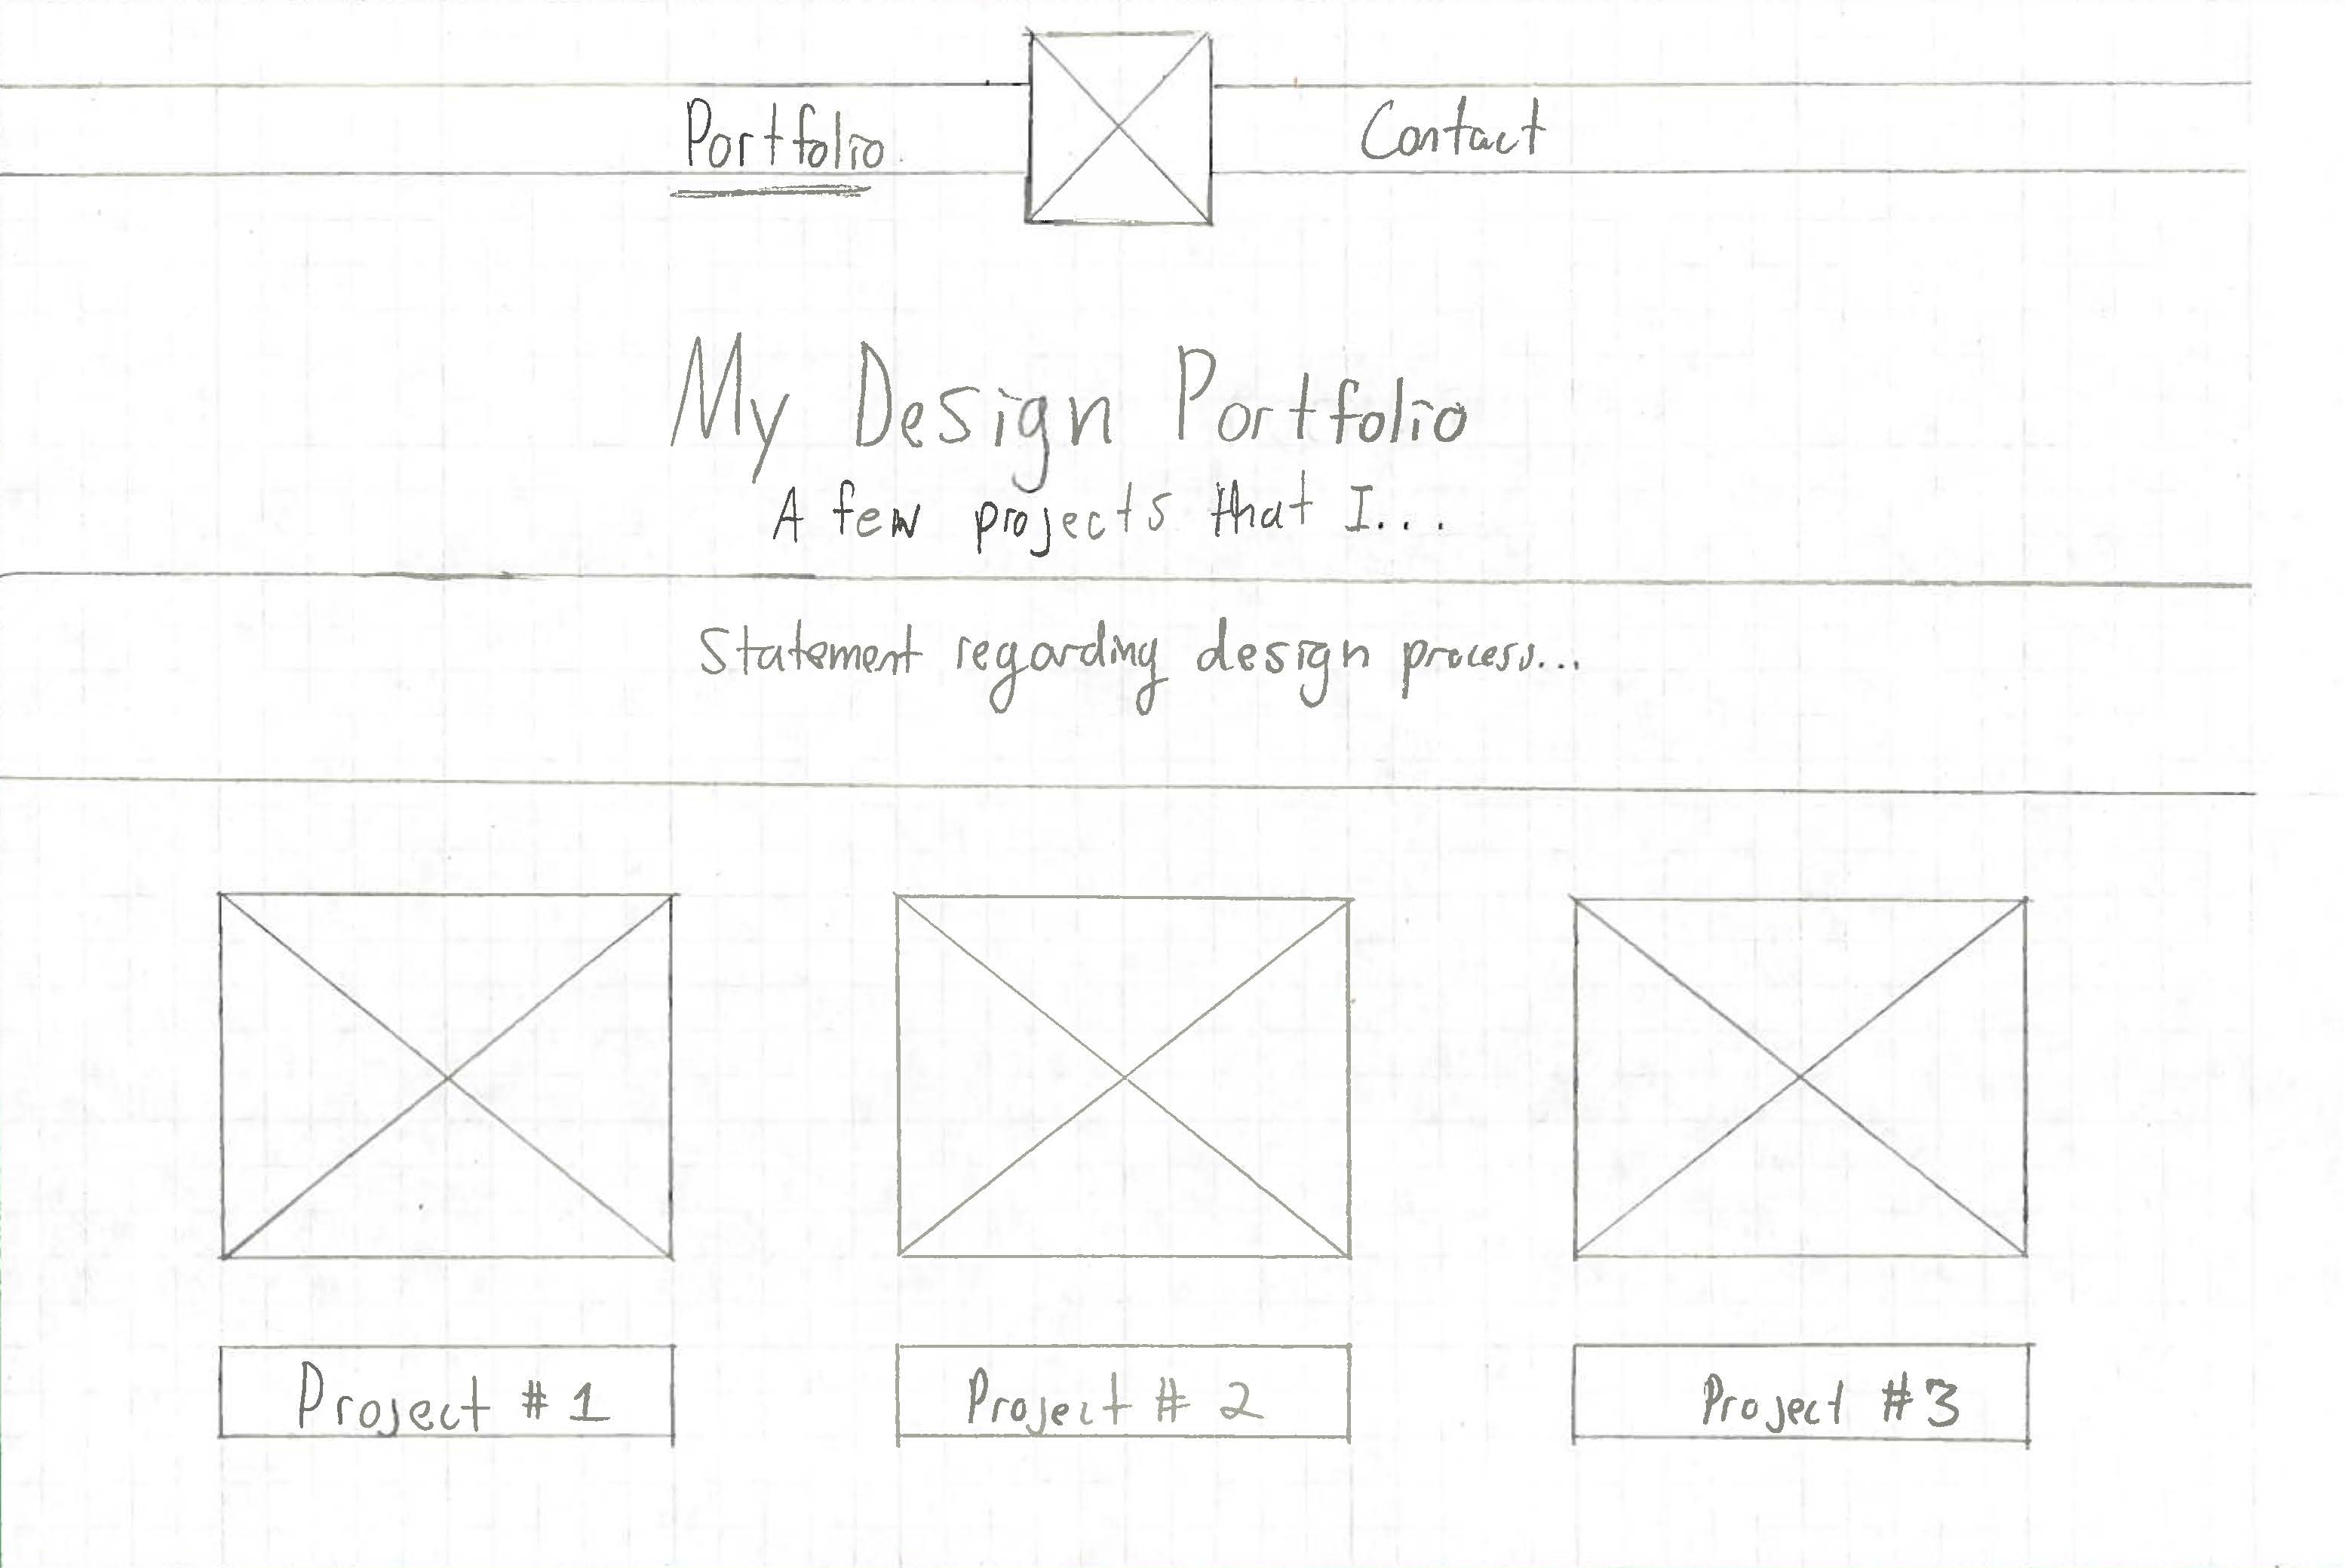 Portfolio
Contact
My Design Portfolio
A few projects that I...
Statement regarding design process...
Project #1
Project # 2
Project #3